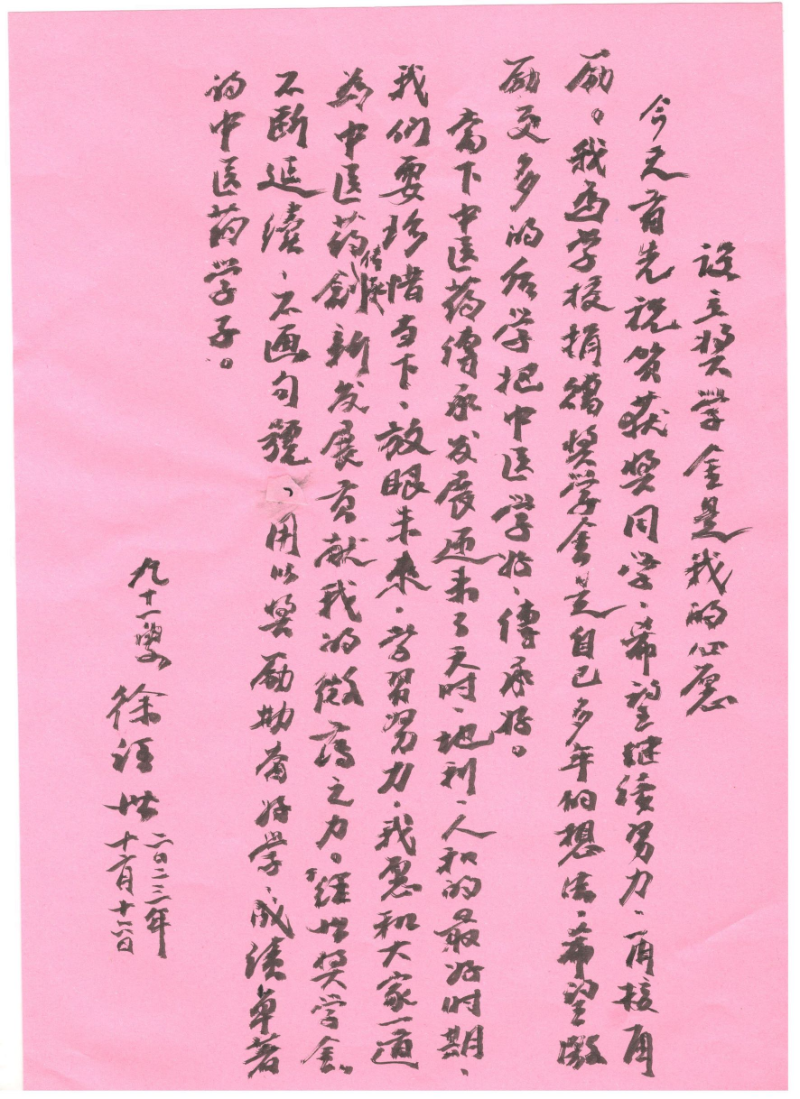 设立奖学金是我的心愿
今天首先祝贺获奖同学、希望继续努力、再接再
励。我为学校捐赠奖学金是自己多年的想法，希望激
励更多的后学把中医学好、傳承好。
当下中医药傳承发展迎来了天时、地利、人和的最好时期、
我们要珍惜当下、放眼未来，学习努力，我愿和大家一道
为中医药传承创新发展贡献我的微薄之力。“经世奖学金”
不断延续、不画句號、用以奖励勤奋好学、成绩卓著
的中医药学子。
九十一叟 徐经世
二〇二三年
十二月十六日